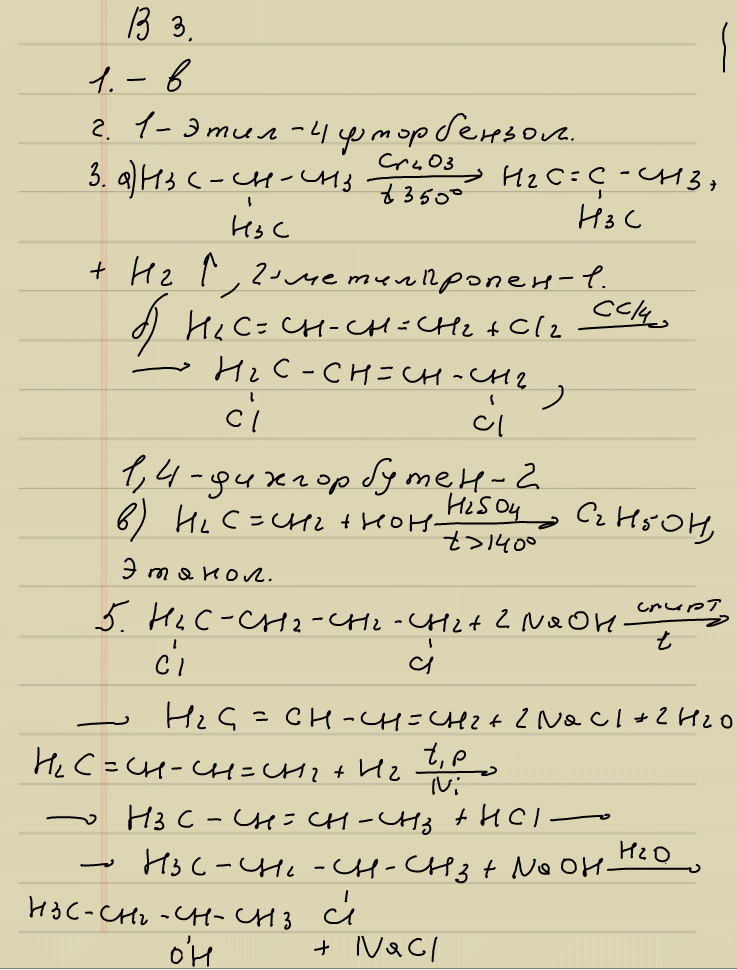 В 3.
1. – в
2. 1-этил-4 фторбензол.
3. а) H3C-CH-CH3 Cr2O3 t 350° H2C=C-CH3,
H3C H3C
+ H2 ↑, 2-метилпропен-1.
б) H2C=CH-CH=CH2 + Cl2 CCl4 →
→ H2C-CH=CH-CH2,
Cl Cl
1,4-дихлорбутен-2
в) H2C=CH2 + HOH H2SO4 t>140° → C2H5OH,
Этанол.
5. H2C-CH2-CH2-CH2 + 2NaOH спирт t →
Cl Cl
→ H2C=CH-CH=CH2 + 2NaCl + 2H2O
H2C=CH-CH=CH2 + H2 t,p Ni →
→ H3C-CH=CH-CH3 + HCl →
→ H3C-CH2-CH-CH3 + NaOH H2O →
H3C-CH2-CH-CH3 Cl
OH + NaCl